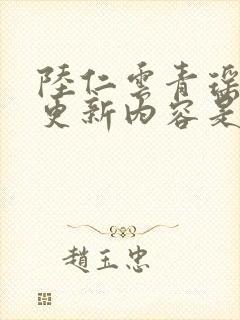 陸仁雲青瑤
更新內容是
趙玉忠